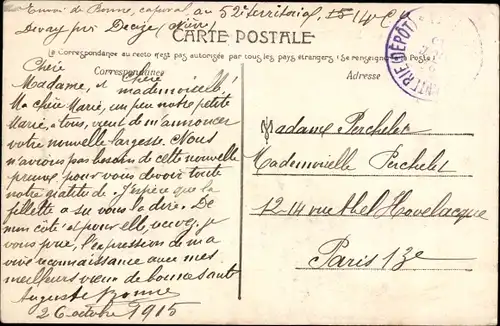 Envoi de Bonne, caporal au 52e territorial, 14e Cie
Devay près Decize (Nièvre)
CARTE POSTALE
La Correspondance au recto n'est pas autorisée par tous les pays étrangers (Se renseigner à la Poste)
Correspondance
Adresse
INFANTERIE (DÉPÔT)
Chère Chère
Madame, et mademoiselle,
Ma chère Marie, un peu notre petite
Marie, à tous, vient de m'annoncer
votre nouvelle largesse. Nous
n'avions pas besoin de cette nouvelle
preuve pour vous devoir toute
notre gratitude. J'espère que la
fillette a su vous la dire. De
mon côté et pour elle, agréez, je
vous prie, l'expression de ma
vive reconnaissance avec mes
meilleurs vœux de bonne santé
Auguste Bonne
26 octobre 1915
Madame Perchelet
Mademoiselle Perchelet
12-14 rue Abel Hovelacque
Paris 13e